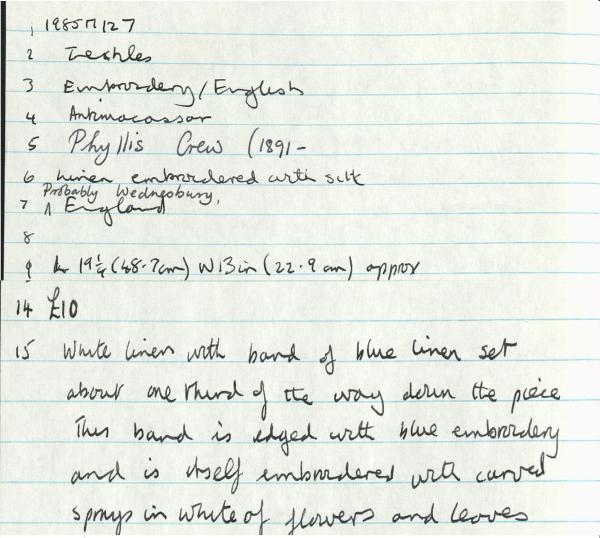 1 1985M127
2 Textiles
3 Embroidery/English
4 Antimacassar
5 Phyllis Crew (1891-
6 Linen embroidered with silk
Probably Wednesbury,
7 ^ England
8
9 19¼ (48.7cm) W13in (22.9 cm) approx
14 £10
15 White linen with band of blue linen set
about one third of the way down the piece
This band is edged with blue embroidery
and is itself embroidered with curved
sprays in white of flowers and leaves